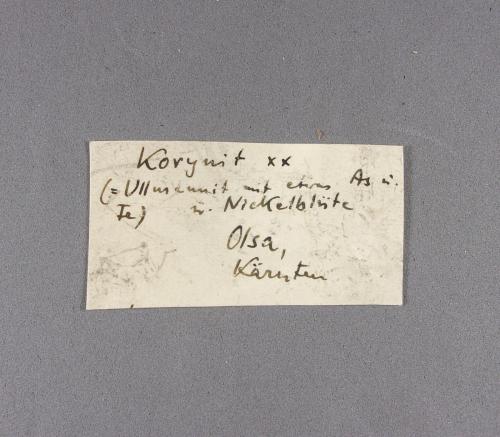 Korynit xx
(= Ullmannit mit etwas As u.
Fe) u. Nickelblüte
Olsa,
Kärnten